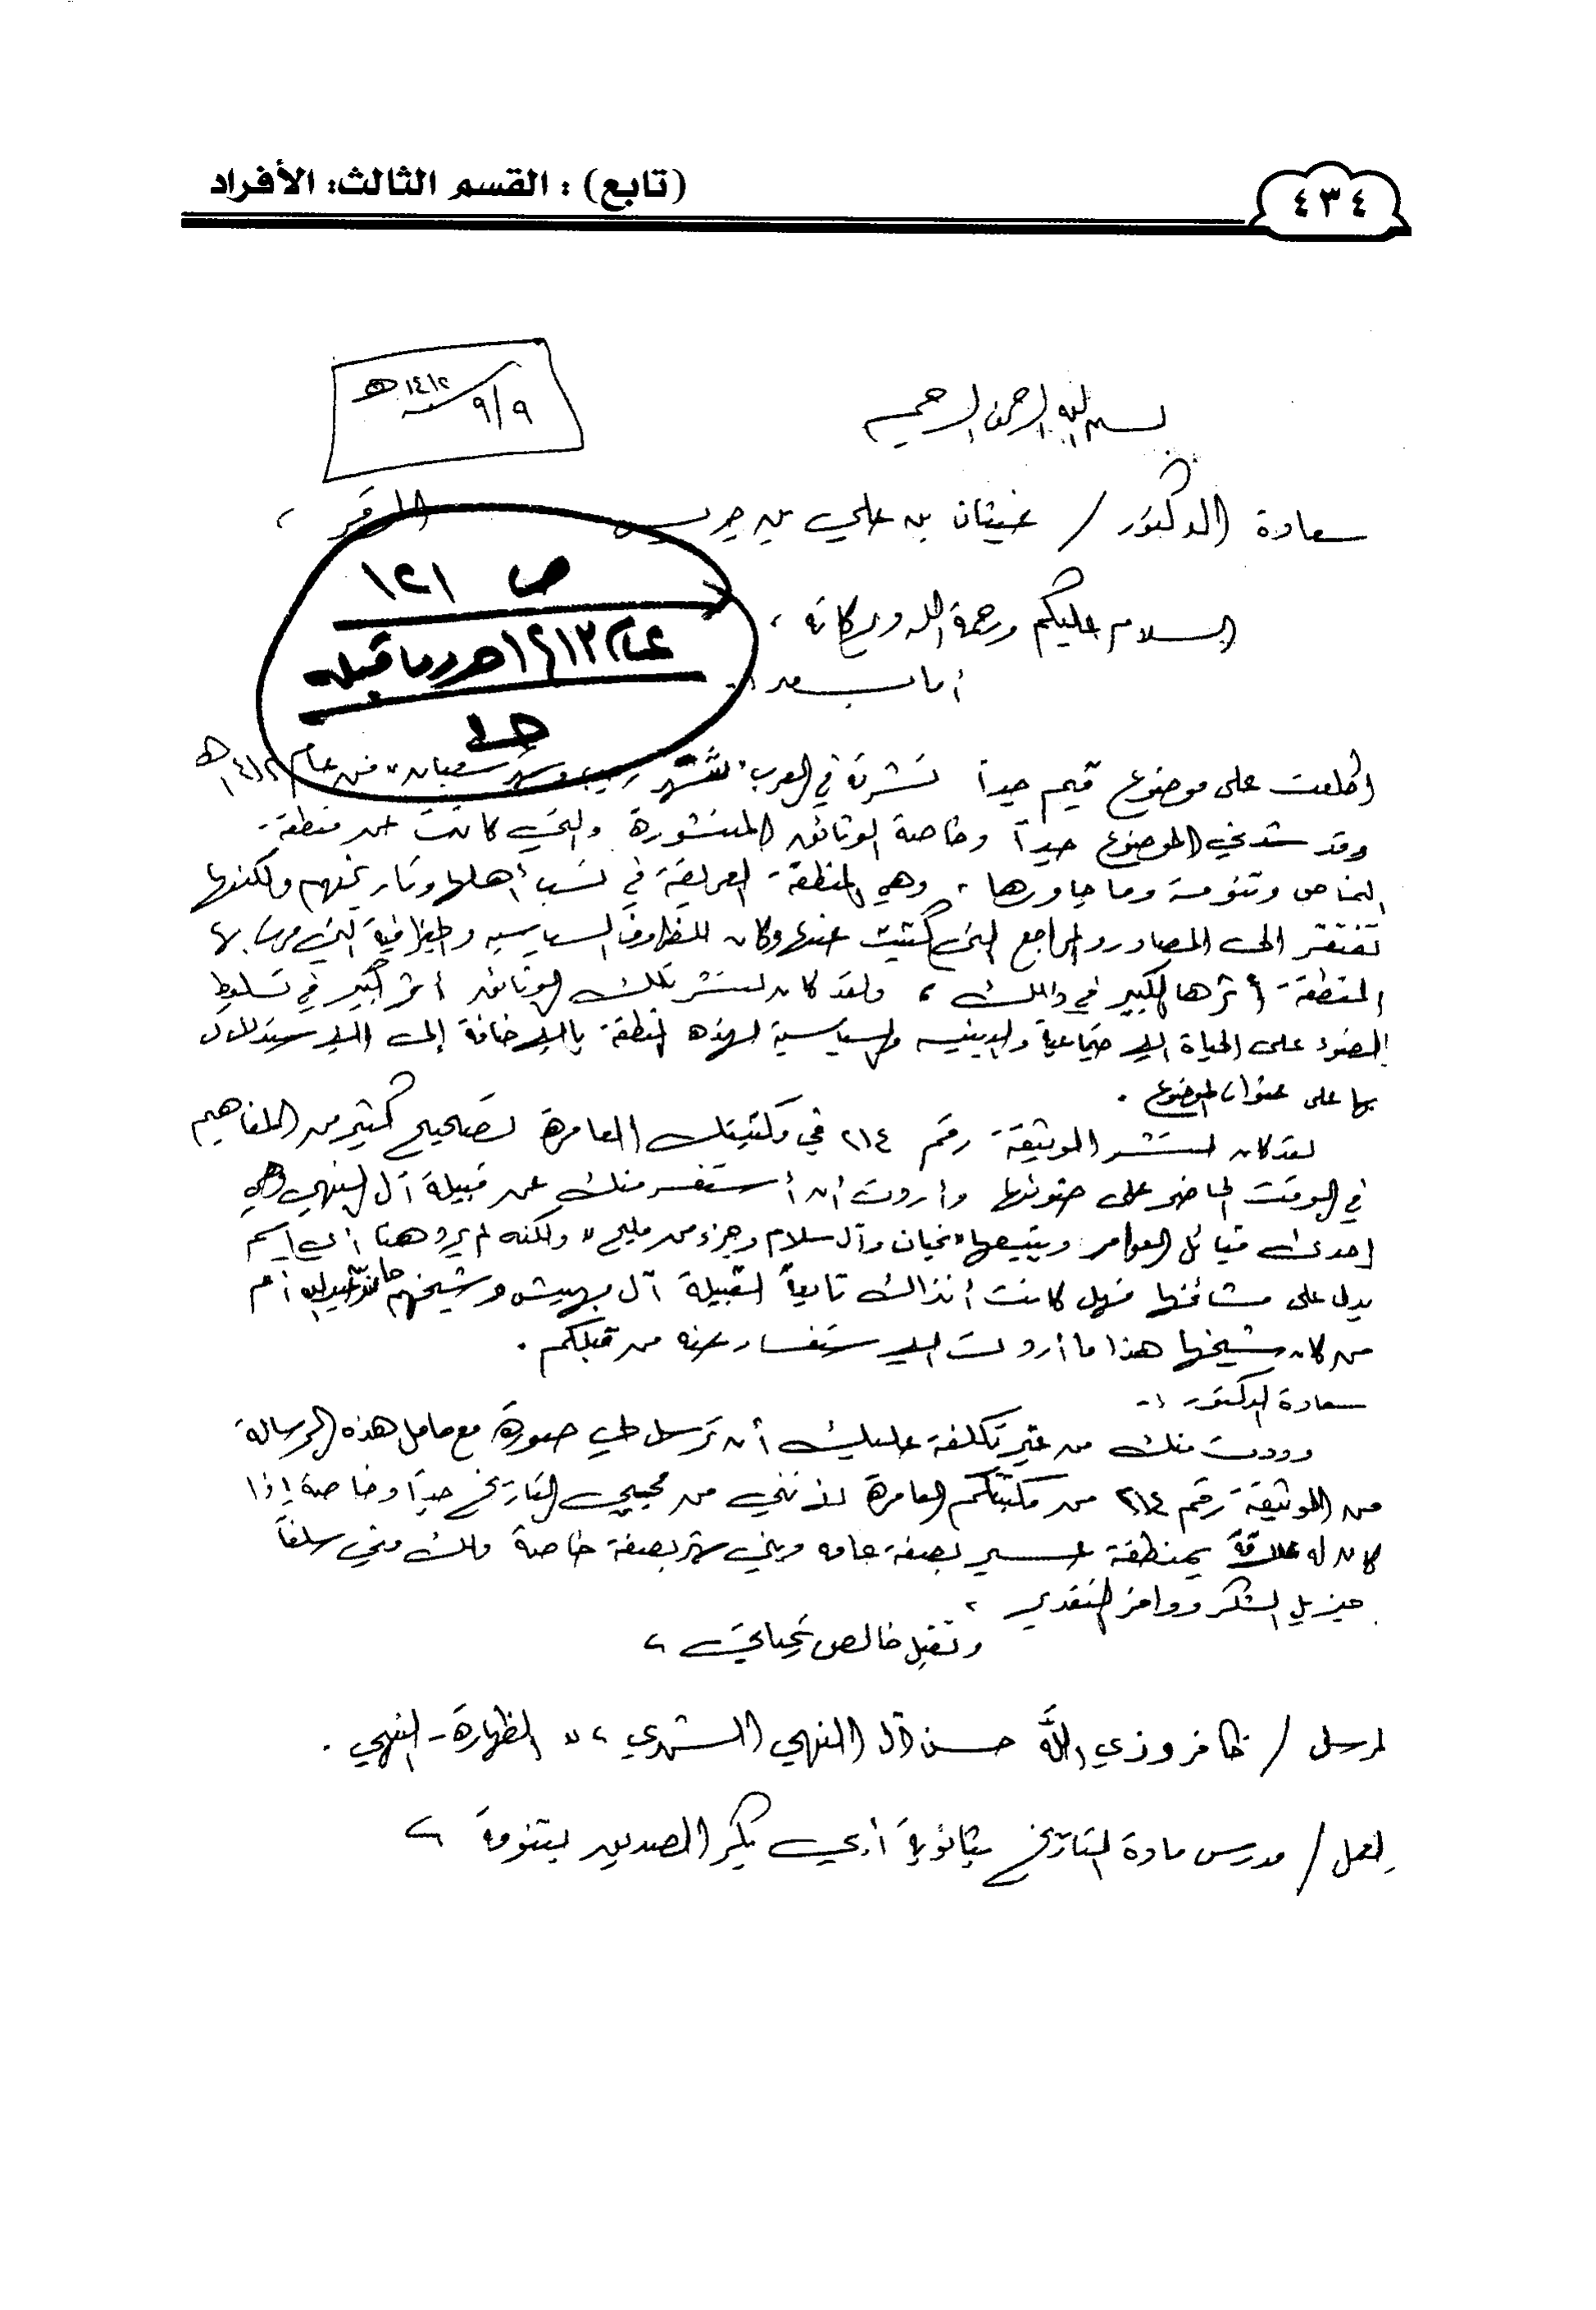 ٤٣٤
(تابع) : القسم الثالث: الأفراد
١٤١٢هـ
٩/٩
بسم الله الرحمن الرحيم
سعادة الدكتور / غيثان بن علي بن جريس الموقر ،
ص ١٢١
عام ١٤١٢هـ وما قبله
السلام عليكم ورحمة الله وبركاته ،
أما بعد ..
اطلعت على موضوع قيم جداً نشرته في العرب " لشهر رجب وشهر شعبان " من عام ١٤١٢هـ
وقد شدني الموضوع جيداً وخاصة الوثائق المنشورة والتي كانت عن منطقة
النماص وتنومة وما جاورها ، وهي المنطقة العريقة في نسب أهلها وتاريخهم ولكنها
تفتقر الى المصادر والمراجع التي كتبت عنها وكان للظروف السياسيه والجغرافية التي مرت بها
المنطقة أثرها الكبير في ذالك ، ولقد كان لنشر تلك الوثائق أثر كبير في تسليط
الضوء على الحياة الاجتماعية والدينيه والسياسية لهذه المنطقة بالإضافة إلى الاستدلال
بها على عنوان الموضوع .
لقد كان لنشر الوثيقة رقم ٢١٤ في مكتبتك العامرة تصحيح كثير من المفاهيم
في الوقت الحاضر على ضوئها وأردت أن أستفسر منك عن قبيلة آل النهي وهي
احدى قبائل العوامر ويتبعها " نحيان وآل سلام وجزء من مليح " ولكنه لم يرد هنا أي اسم
يدل على مشائخها فهل كانت أنذاك تابعة لقبيلة آل بهيش وشيخهم عبدالله أم
من كان شيخها هذا ما أردت الاستفسار عنه من قبلكم .
سعادة الدكتور :-
وددت منك من غير تكلفة عليك أن ترسل لي صورة مع حامل هذه الرسالة
من الوثيقة رقم ٢١٤ من مكتبتكم العامرة لأنني من محبي التاريخ جداً وخاصة إذا
كان له علاقة بمنطقة عسير بصفة عامه وبني شهر بصفة خاصة ولك مني سلفاً
جزيل الشكر ووافر التقدير ،
وتقبل خالص تحياتي ،
المرسل / ظافر وذي الله حسن آل النهي الشهري ، " الظهارة - النهي .
العمل / مدرس مادة التاريخ بثانوية أبي بكر الصديق بتنومة ،